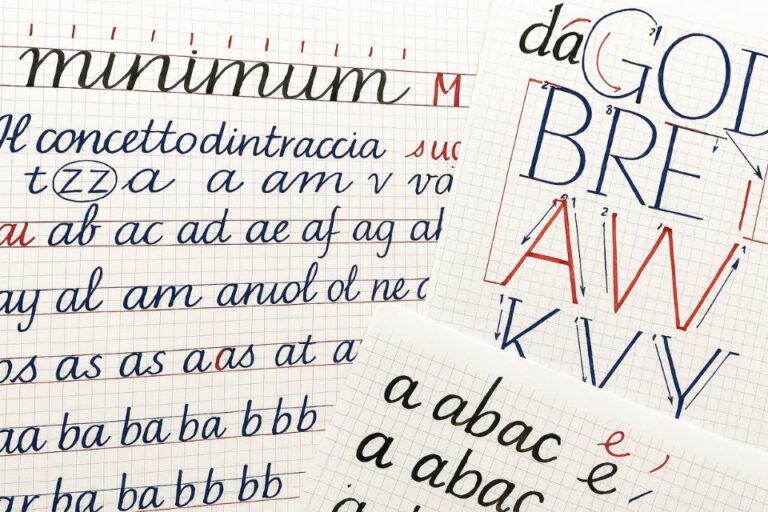 minimum M
Il concettodintraccia
tzza a am v
au ab ac ad ae af ag
ay al am ol ne
os as as aas at a
aa ba ba ba b bb
ba ba bb bb
da
GOD
BRE
AW
KVY
a abac e
a abac e